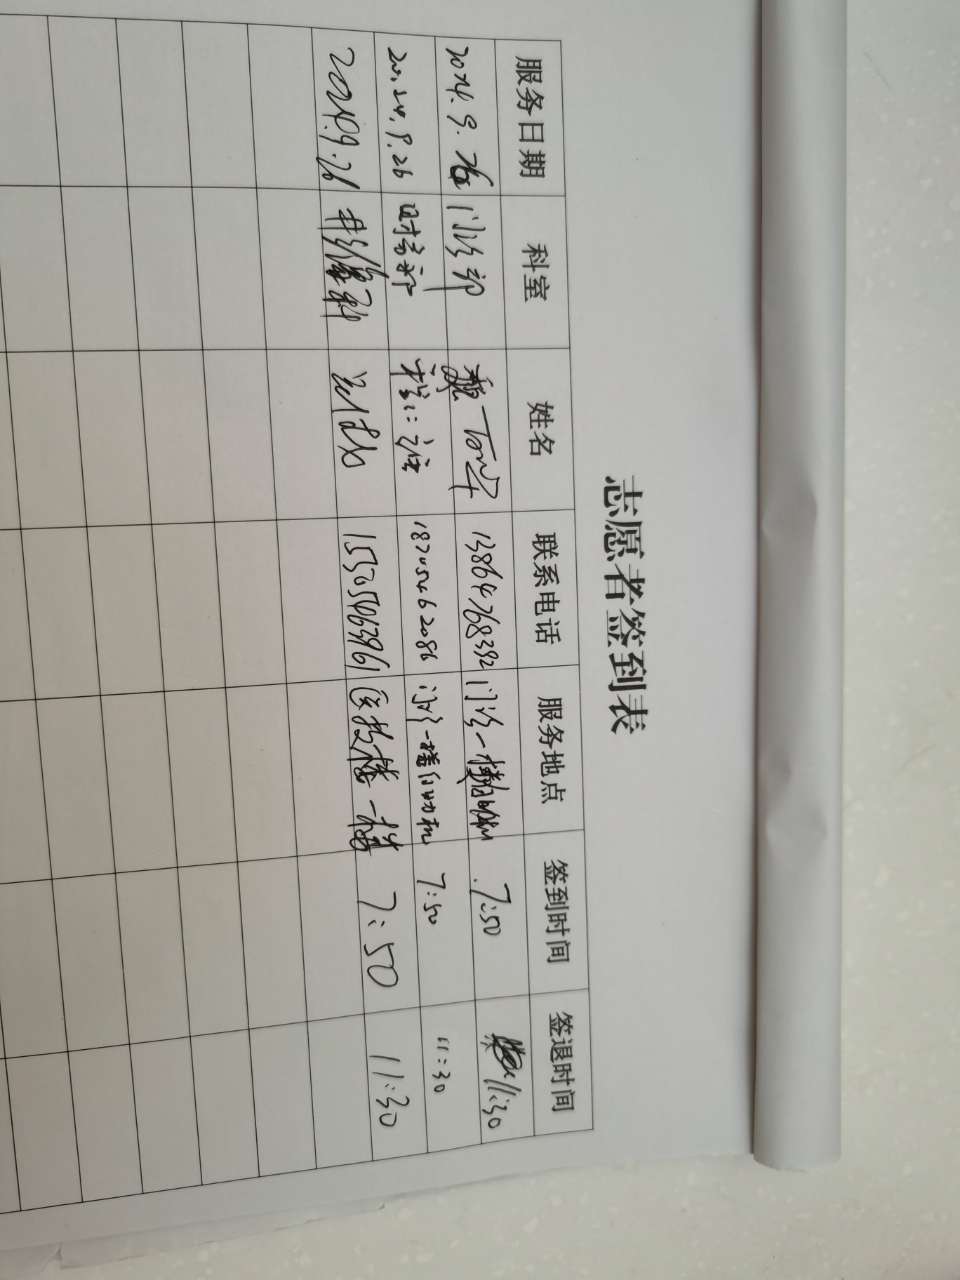 志愿者签到表
服务日期 科室 姓名 联系电话 服务地点 签到时间 签退时间
2024.9.26 门诊部 魏 13864768392 门诊一楼 7:50 11:30
2024.9.26 财务部 18705462086 门诊一楼 7:50 11:30
2024.9.26 15305463961 医技楼一楼 7:50 11:30